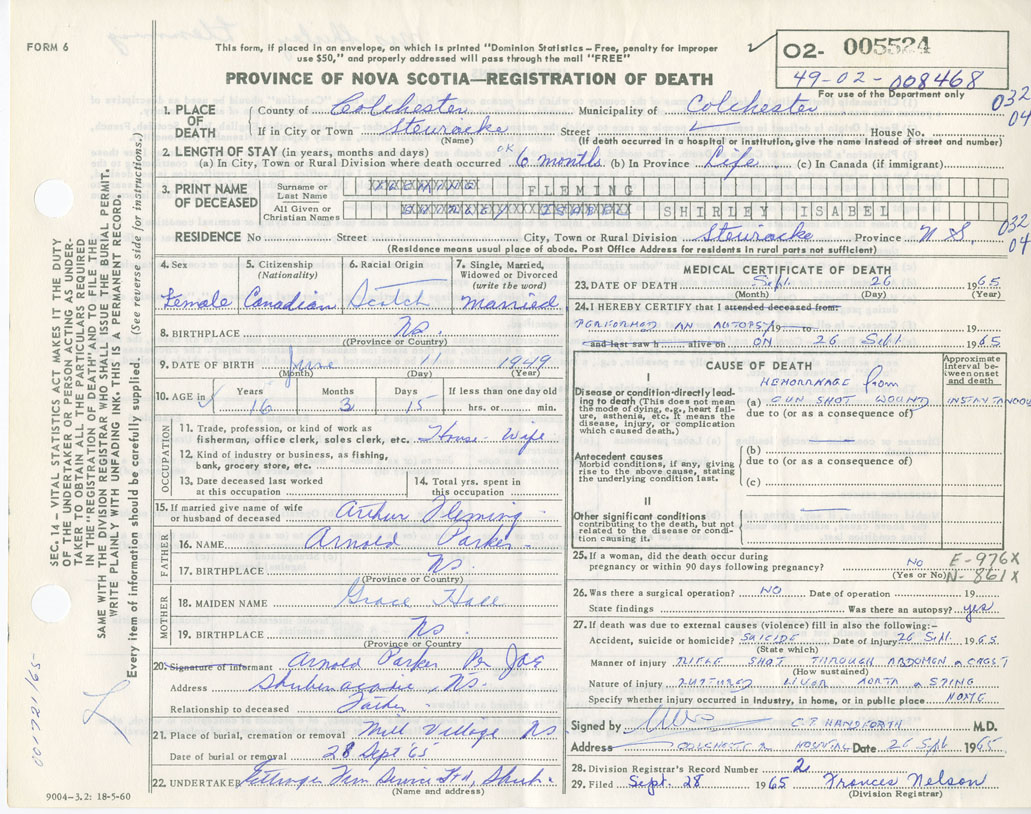 FORM 6
This form, if placed in an envelope, on which is printed "Dominion Statistics – Free, penalty for improper
use $50," and properly addressed will pass through the mail "FREE"
PROVINCE OF NOVA SCOTIA—REGISTRATION OF DEATH
O2- 005524
49-02-008468
For use of the Department only
032
04
1. PLACE OF DEATH County of Colchester Municipality of Colchester
If in City or Town Stewiacke Street House No.
(Name) (If death occurred in a hospital or institution, give the name instead of street and number)
2. LENGTH OF STAY (in years, months and days)
(a) In City, Town or Rural Division where death occurred 6 months (b) In Province Life (c) In Canada (if immigrant)
3. PRINT NAME OF DECEASED
Surname or Last Name FLEMING
All Given or Christian Names SHIRLEY ISABEL
RESIDENCE No Street City, Town or Rural Division Stewiacke Province N S.
032
04
(Residence means usual place of abode. Post Office Address for residents in rural parts not sufficient)
4. Sex Female
5. Citizenship (Nationality) Canadian
6. Racial Origin Scotch
7. Single, Married, Widowed or Divorced (write the word) Married
8. BIRTHPLACE Ns.
(Province or Country)
9. DATE OF BIRTH June 11 1949
(Month) (Day) (Year)
10. AGE in Years 16 Months 3 Days 15 If less than one day old hrs. or min.
OCCUPATION
11. Trade, profession, or kind of work as
fisherman, office clerk, sales clerk, etc. House-Wife
12. Kind of industry or business, as fishing,
bank, grocery store, etc.
13. Date deceased last worked at this occupation
14. Total yrs. spent in this occupation
15. If married give name of wife
or husband of deceased Arthur Fleming
FATHER
16. NAME Arnold Parker
17. BIRTHPLACE Ns
(Province or Country)
MOTHER
18. MAIDEN NAME Grace Hall
19. BIRTHPLACE Ns
(Province or Country)
20. Signature of informant Arnold Parker Per
Address Shubenacadie, Ns.
Relationship to deceased Father
21. Place of burial, cremation or removal Mill Village Ns
Date of burial or removal 28 Sept '65
22. UNDERTAKER Ltd, Shub.
(Name and address)
MEDICAL CERTIFICATE OF DEATH
23. DATE OF DEATH Sept. 26 1965
(Month) (Day) (Year)
24. I HEREBY CERTIFY that I attended deceased from:
PERFORMED AN AUTOPSY 19 to 19
and last saw h alive on ON 26 Sept. 1965
CAUSE OF DEATH
Approximate interval between onset and death
I
Disease or condition directly leading to death (This does not mean the mode of dying, e.g., heart failure, asthenia, etc. It means the disease, injury, or complication which caused death.)
HEMORRHAGE from
(a) GUN SHOT WOUND INSTANTANOU
due to (or as a consequence of)
Antecedent causes
Morbid conditions, if any, giving rise to the above cause, stating the underlying condition last.
(b)
due to (or as a consequence of)
(c)
II
Other significant conditions
contributing to the death, but not related to the disease or condition causing it.
25. If a woman, did the death occur during
pregnancy or within 90 days following pregnancy? NO
(Yes or No)
E-976X
N-861X
26. Was there a surgical operation? NO Date of operation 19
State findings Was there an autopsy? yes
27. If death was due to external causes (violence) fill in also the following:-
Accident, suicide or homicide? SUICIDE Date of injury 26 Sept. 1965.
(State which)
Manner of injury RIFLE SHOT THROUGH ABDOMEN & CHEST
(How sustained)
Nature of injury RUPTURED LIVER AORTA & SPINE
Specify whether injury occurred in Industry, in home, or in public place HOME
Signed by C.P. HANDFORTH M.D.
Address COLCHESTER HOSPITAL Date 26 Sept 1965
28. Division Registrar's Record Number 2
29. Filed Sept. 28 1965 Frances Nelson
(Division Registrar)
9004–3.2: 18-5-60
SEC. 14 – VITAL STATISTICS ACT MAKES IT THE DUTY
OF THE UNDERTAKER OR PERSON ACTING AS UNDER-
TAKER TO OBTAIN ALL THE PARTICULARS REQUIRED
IN THE "REGISTRATION OF DEATH" AND TO FILE THE
SAME WITH THE DIVISION REGISTRAR WHO SHALL ISSUE THE BURIAL PERMIT.
WRITE PLAINLY WITH UNFADING INK. THIS IS A PERMANENT RECORD.
Every item of information should be carefully supplied. (See reverse side for instructions.)